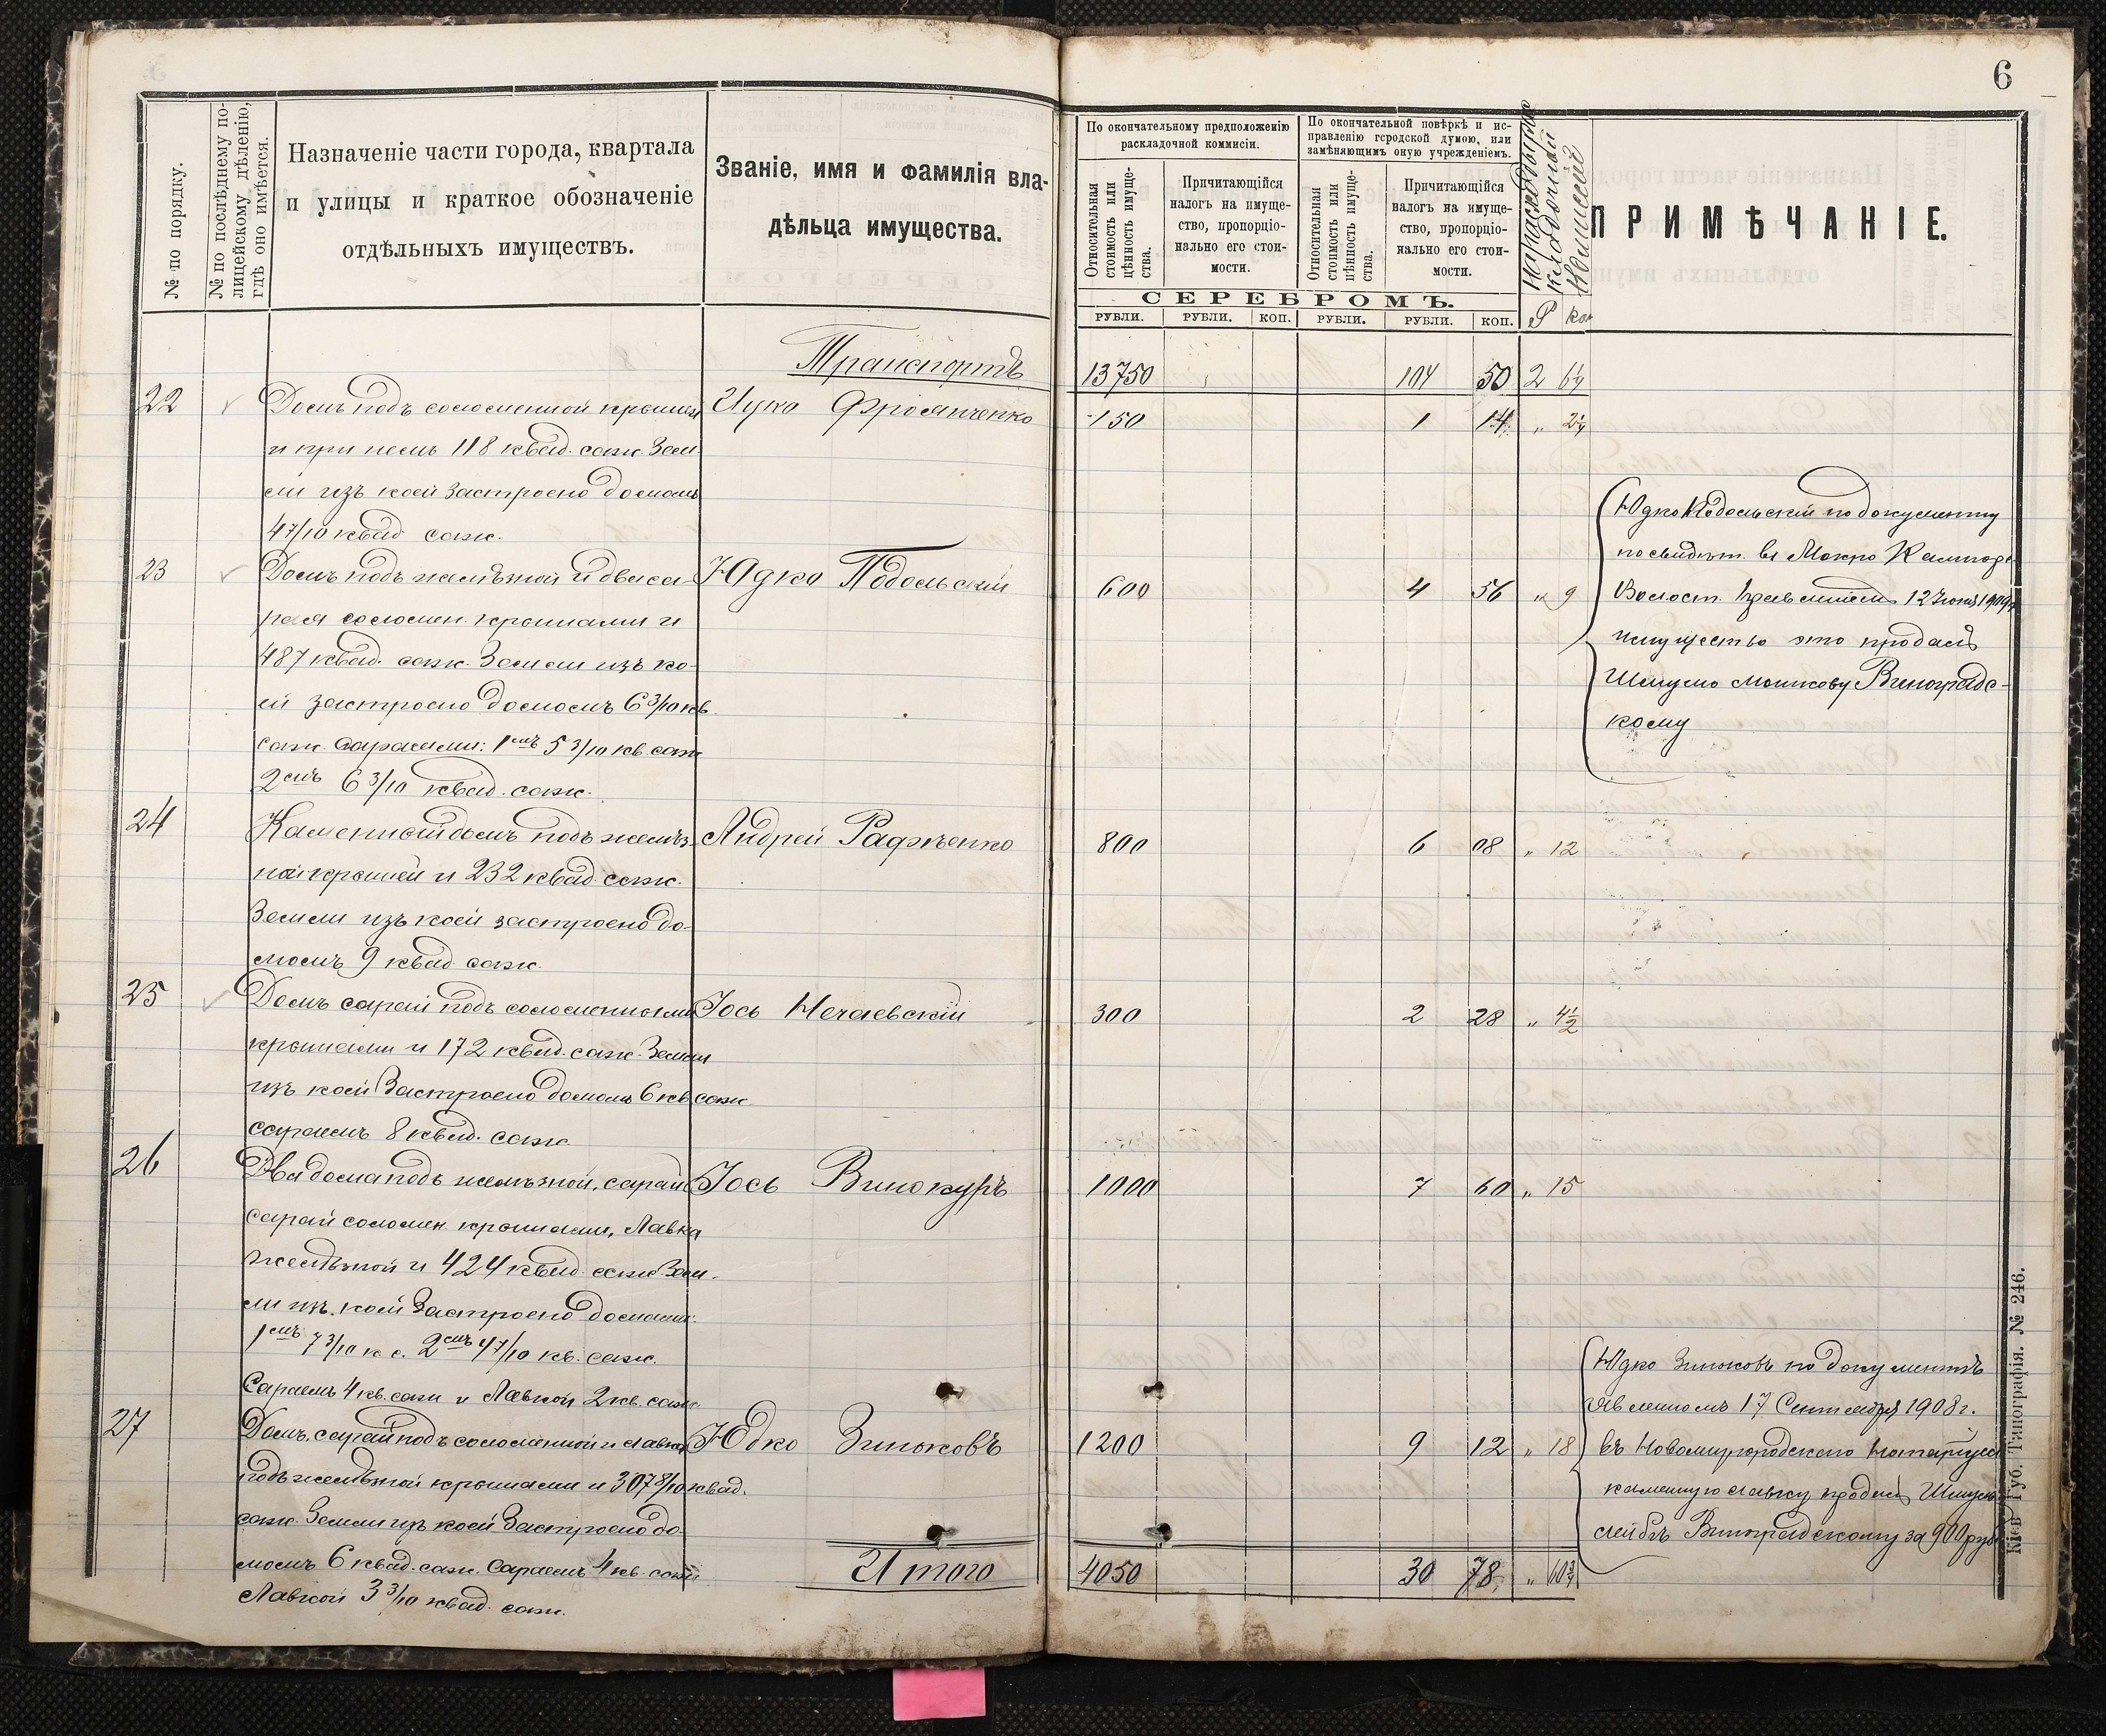 6
№ по порядку.
№ по послѣднему по-
лицейскому дѣленію,
гдѣ оно имѣется.
Назначеніе части города, квартала
и улицы и краткое обозначеніе
отдѣльныхъ имуществъ.
Званіе, имя и фамилія вла-
дѣльца имущества.
По окончательному предположенію
раскладочной коммисіи.
По окончательной повѣркѣ и ис-
правленію городской думою, или
замѣняющимъ оную учрежденіемъ.
Относительная
стоимость или
цѣнность имуще-
ства.
Причитающійся
налогъ на имуще-
ство, пропорціо-
нально его стои-
мости.
Относительная
стоимость или
цѣнность имуще-
ства.
Причитающійся
налогъ на имуще-
ство, пропорціо-
нально его стои-
мости.
ПРИМѢЧАНІЕ.
СЕРЕБРОМЪ.
РУБЛИ. РУБЛИ. КОП. РУБЛИ. РУБЛИ. КОП. Р Коп
Транспортъ 13750 104 50 2 6¼
22 Домъ подъ соломенной крышей Ицко 150 1 14 „ 2¼
и при немъ 118 квад. саж. Зем
ли изъ коей застроено домомъ
4 7/10 квад саж.
23 Домъ подъ желѣзной и два са- Юдко Подольскій 600 4 56 „ 9
рая соломен. крышами и
487 квад. саж. Земли изъ ко-
ей застроено домомъ 6 3/10 кв
саж. сараями: 1мъ 5 3/10 кв. саж
2мъ 6 3/10 квад. саж.
Юдко Подольскій по документу
Волост. Правленіем 12 1909
имущество это продалъ
Шмулю Мошкову Виноградс-
кому
24 Каменный домъ подъ желѣз- Андрей Радченко 800 6 08 „ 12
ной крышей и 232 квад. саж.
Земли изъ коей застроено до-
момъ 9 квад. саж.
25 Домъ сарай подъ соломенными Іось Нечаевскій 300 2 28 „ 4½
крышами и 172 квад. саж. Земли
изъ коей Застроено домомъ 6 кв саж
сараемъ 8 квад. саж
26 Два дома подъ желѣзной, сарай Іось Винокуръ 1000 7 60 „ 15
сарай соломен крышами, Лавка
желѣзной и 424 квад. саж. Зем-
ли изъ коей Застроено домами:
1мъ 7 3/10 к с. 2мъ 4 7/10 кв. саж.
Сараемъ 4 кв. саж и Лавкой 2 кв. саж.
27 Домъ, сарай подъ соломенной и лавка Юдко Зиньковъ 1200 9 12 „ 18
подъ желѣзной крышами и 307 8/10 квад.
саж. Земли изъ коей Застроено до-
момъ 6 квад. саж. Сараемъ 4 кв. саж
Лавкой 3 3/10 квад. саж.
Юдко Зиньковъ по документѣ
явленномъ 17 Сентября 1908 г.
въ Новомиргородскаго Нотаріуса
каменную лавку продалъ
Виноградскому за 900 руб
Итого 4050 30 78 „ 60¾
Кіев Губ. Типографія. № 246.